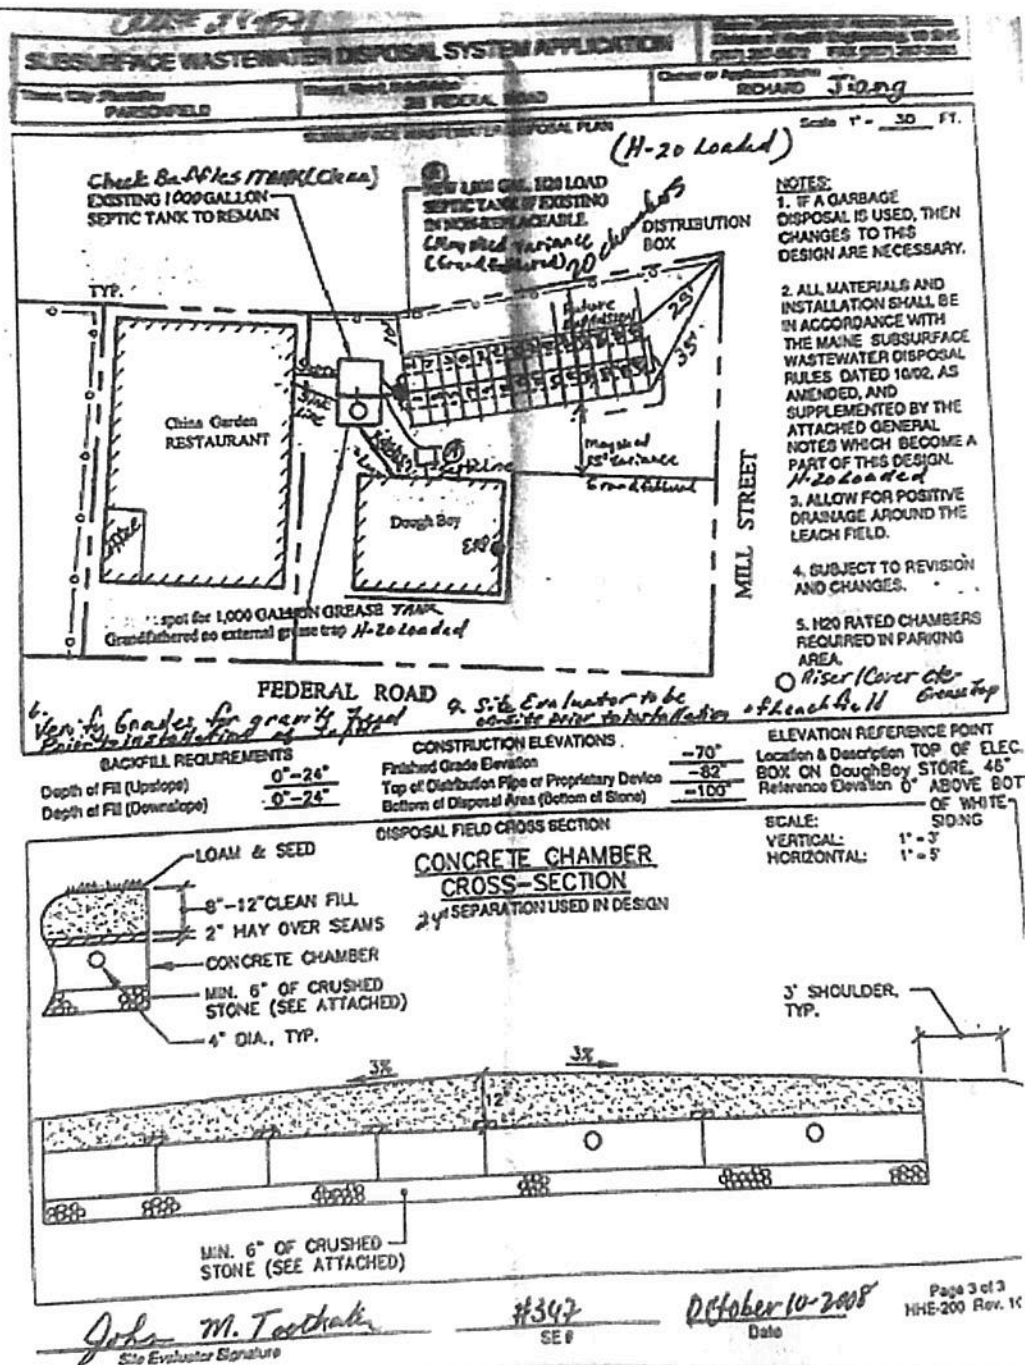 SUBSURFACE WASTEWATER DISPOSAL SYSTEM APPLICATION
Town, City, Plantation
PARSONSFIELD
FEDERAL ROAD
Owner or Applicant Name
RICHARD Jiang
SUBSURFACE WASTEWATER DISPOSAL PLAN
Scale 1" = 30 FT.
(H-20 Loaded)
Check Baffles (Clean)
EXISTING 1000 GALLON
SEPTIC TANK TO REMAIN
NEW 1,000 GAL. H20 LOAD
SEPTIC TANK IF EXISTING
IN NON-REPLACEABLE
(May need variance
(Grandfathered)
20 chambers
DISTRIBUTION
BOX
TYP.
10'
Future
Expansion
25'
35'
China Garden
RESTAURANT
Dough Boy
ERP
May need
variance
Grandfathered
MILL STREET
spot for 1,000 GALLON GREASE TANK
Grandfathered no external grease trap H-20 Loaded
FEDERAL ROAD
NOTES:
1. IF A GARBAGE
DISPOSAL IS USED, THEN
CHANGES TO THIS
DESIGN ARE NECESSARY.
2. ALL MATERIALS AND
INSTALLATION SHALL BE
IN ACCORDANCE WITH
THE MAINE SUBSURFACE
WASTEWATER DISPOSAL
RULES DATED 10/02, AS
AMENDED, AND
SUPPLEMENTED BY THE
ATTACHED GENERAL
NOTES WHICH BECOME A
PART OF THIS DESIGN.
H-20 Loaded
3. ALLOW FOR POSITIVE
DRAINAGE AROUND THE
LEACH FIELD.
4. SUBJECT TO REVISION
AND CHANGES.
5. H20 RATED CHAMBERS
REQUIRED IN PARKING
AREA.
Riser/Cover
Grease Trap
6.
Verify Grades for gravity feed
Prior to installation of
Site Evaluator to be
on-site prior to installation of leachfield
BACKFILL REQUIREMENTS
Depth of Fill (Upslope) 0"-24"
Depth of Fill (Downslope) 0"-24"
CONSTRUCTION ELEVATIONS
Finished Grade Elevation -70"
Top of Distribution Pipe or Proprietary Device -82"
Bottom of Disposal Area (Bottom of Stone) -100"
ELEVATION REFERENCE POINT
Location & Description TOP OF ELEC.
BOX ON DoughBoy STORE. 46"
Reference Elevation 0" ABOVE BOT
OF WHITE
SIDING
DISPOSAL FIELD CROSS SECTION
SCALE:
VERTICAL: 1" = 3'
HORIZONTAL: 1" = 5'
CONCRETE CHAMBER
CROSS-SECTION
24" SEPARATION USED IN DESIGN
LOAM & SEED
8"-12" CLEAN FILL
2" HAY OVER SEAMS
CONCRETE CHAMBER
MIN. 6" OF CRUSHED
STONE (SEE ATTACHED)
4" DIA., TYP.
3' SHOULDER,
TYP.
3%
3%
12"
MIN. 6" OF CRUSHED
STONE (SEE ATTACHED)
John M. Toothaker
Site Evaluator Signature
#347
SE #
October 10-2008
Date
Page 3 of 3
HHE-200 Rev. 10